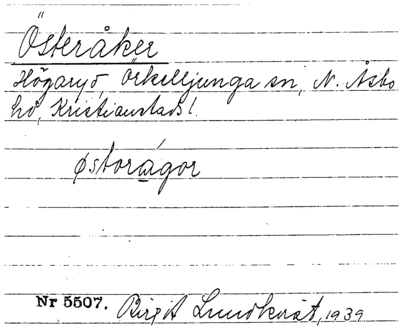 Österåker
Högaryd, Örkelljunga sn, N. Åsbo
hd, Kristianstads l.
østorágor
Nr 5507. Birgit Lundkvist, 1939